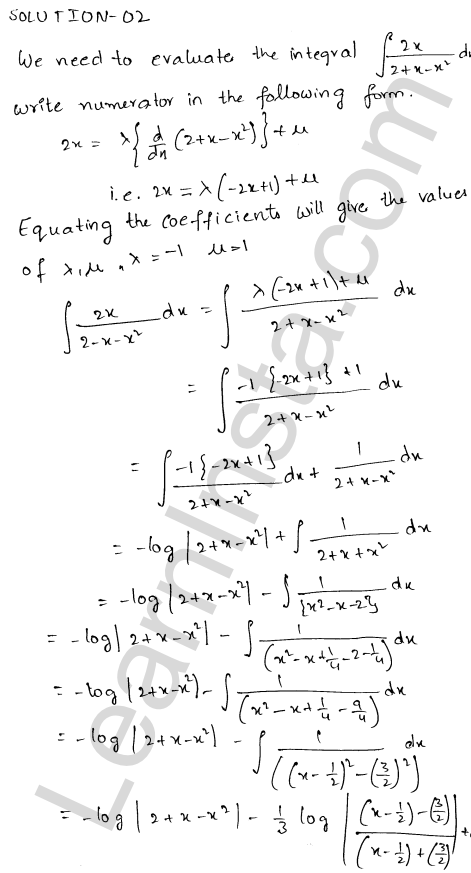 SOLUTION-02
We need to evaluate the integral ∫ 2x/(2+x-x²) dx
write numerator in the following form.
2x = λ{d/dx (2+x-x²)}+μ
i.e. 2x = λ(-2x+1)+μ
Equating the coefficients will give the values
of λ,μ, λ=-1 μ=1
∫ 2x/(2-x-x²) dx = ∫ (λ(-2x+1)+μ)/(2+x-x²) dx
= ∫ (-1{-2x+1}+1)/(2+x-x²) dx
= ∫ (-1{-2x+1})/(2+x-x²) dx + 1/(2+x-x²) dx
= -log|2+x-x²| + ∫ 1/(2+x+x²) dx
= -log|2+x-x²| - ∫ 1/{x²-x-2} dx
= -log|2+x-x²| - ∫ 1/(x²-x+1/4-2-1/4) dx
= -log|2+x-x²) - ∫ 1/(x²-x+1/4-9/4) dx
= -log|2+x-x²| - ∫ 1/((x-1/2)²-(3/2)²) dx
= -log|2+x-x²| - 1/3 log |((x-1/2)-(3/2))/((x-1/2)+(3/2))| +
LearnInsta.com